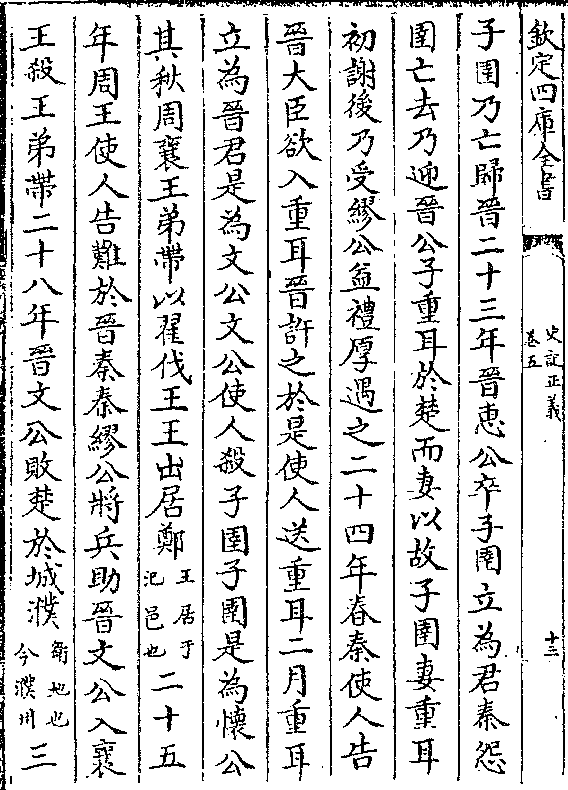 欽定四庫全書
史記正義
卷五
十三
子圉乃亡歸晉二十三年晉惠公卒子圉立為君秦怨
圉亡去乃迎晉公子重耳於楚而妻以故子圉妻重耳
初謝後乃受繆公益禮厚遇之二十四年春秦使人告
晉大臣欲入重耳晉許之於是使人送重耳二月重耳
立為晉君是為文公文公使人殺子圉子圉是為懷公
其秋周襄王弟帶以翟伐王王出居鄭王居于氾邑也二十五
年周王使人告難於晉秦秦繆公將兵助晉文公入襄
王殺王弟帶二十八年晉文公敗楚於城濮衛地也今濮州三